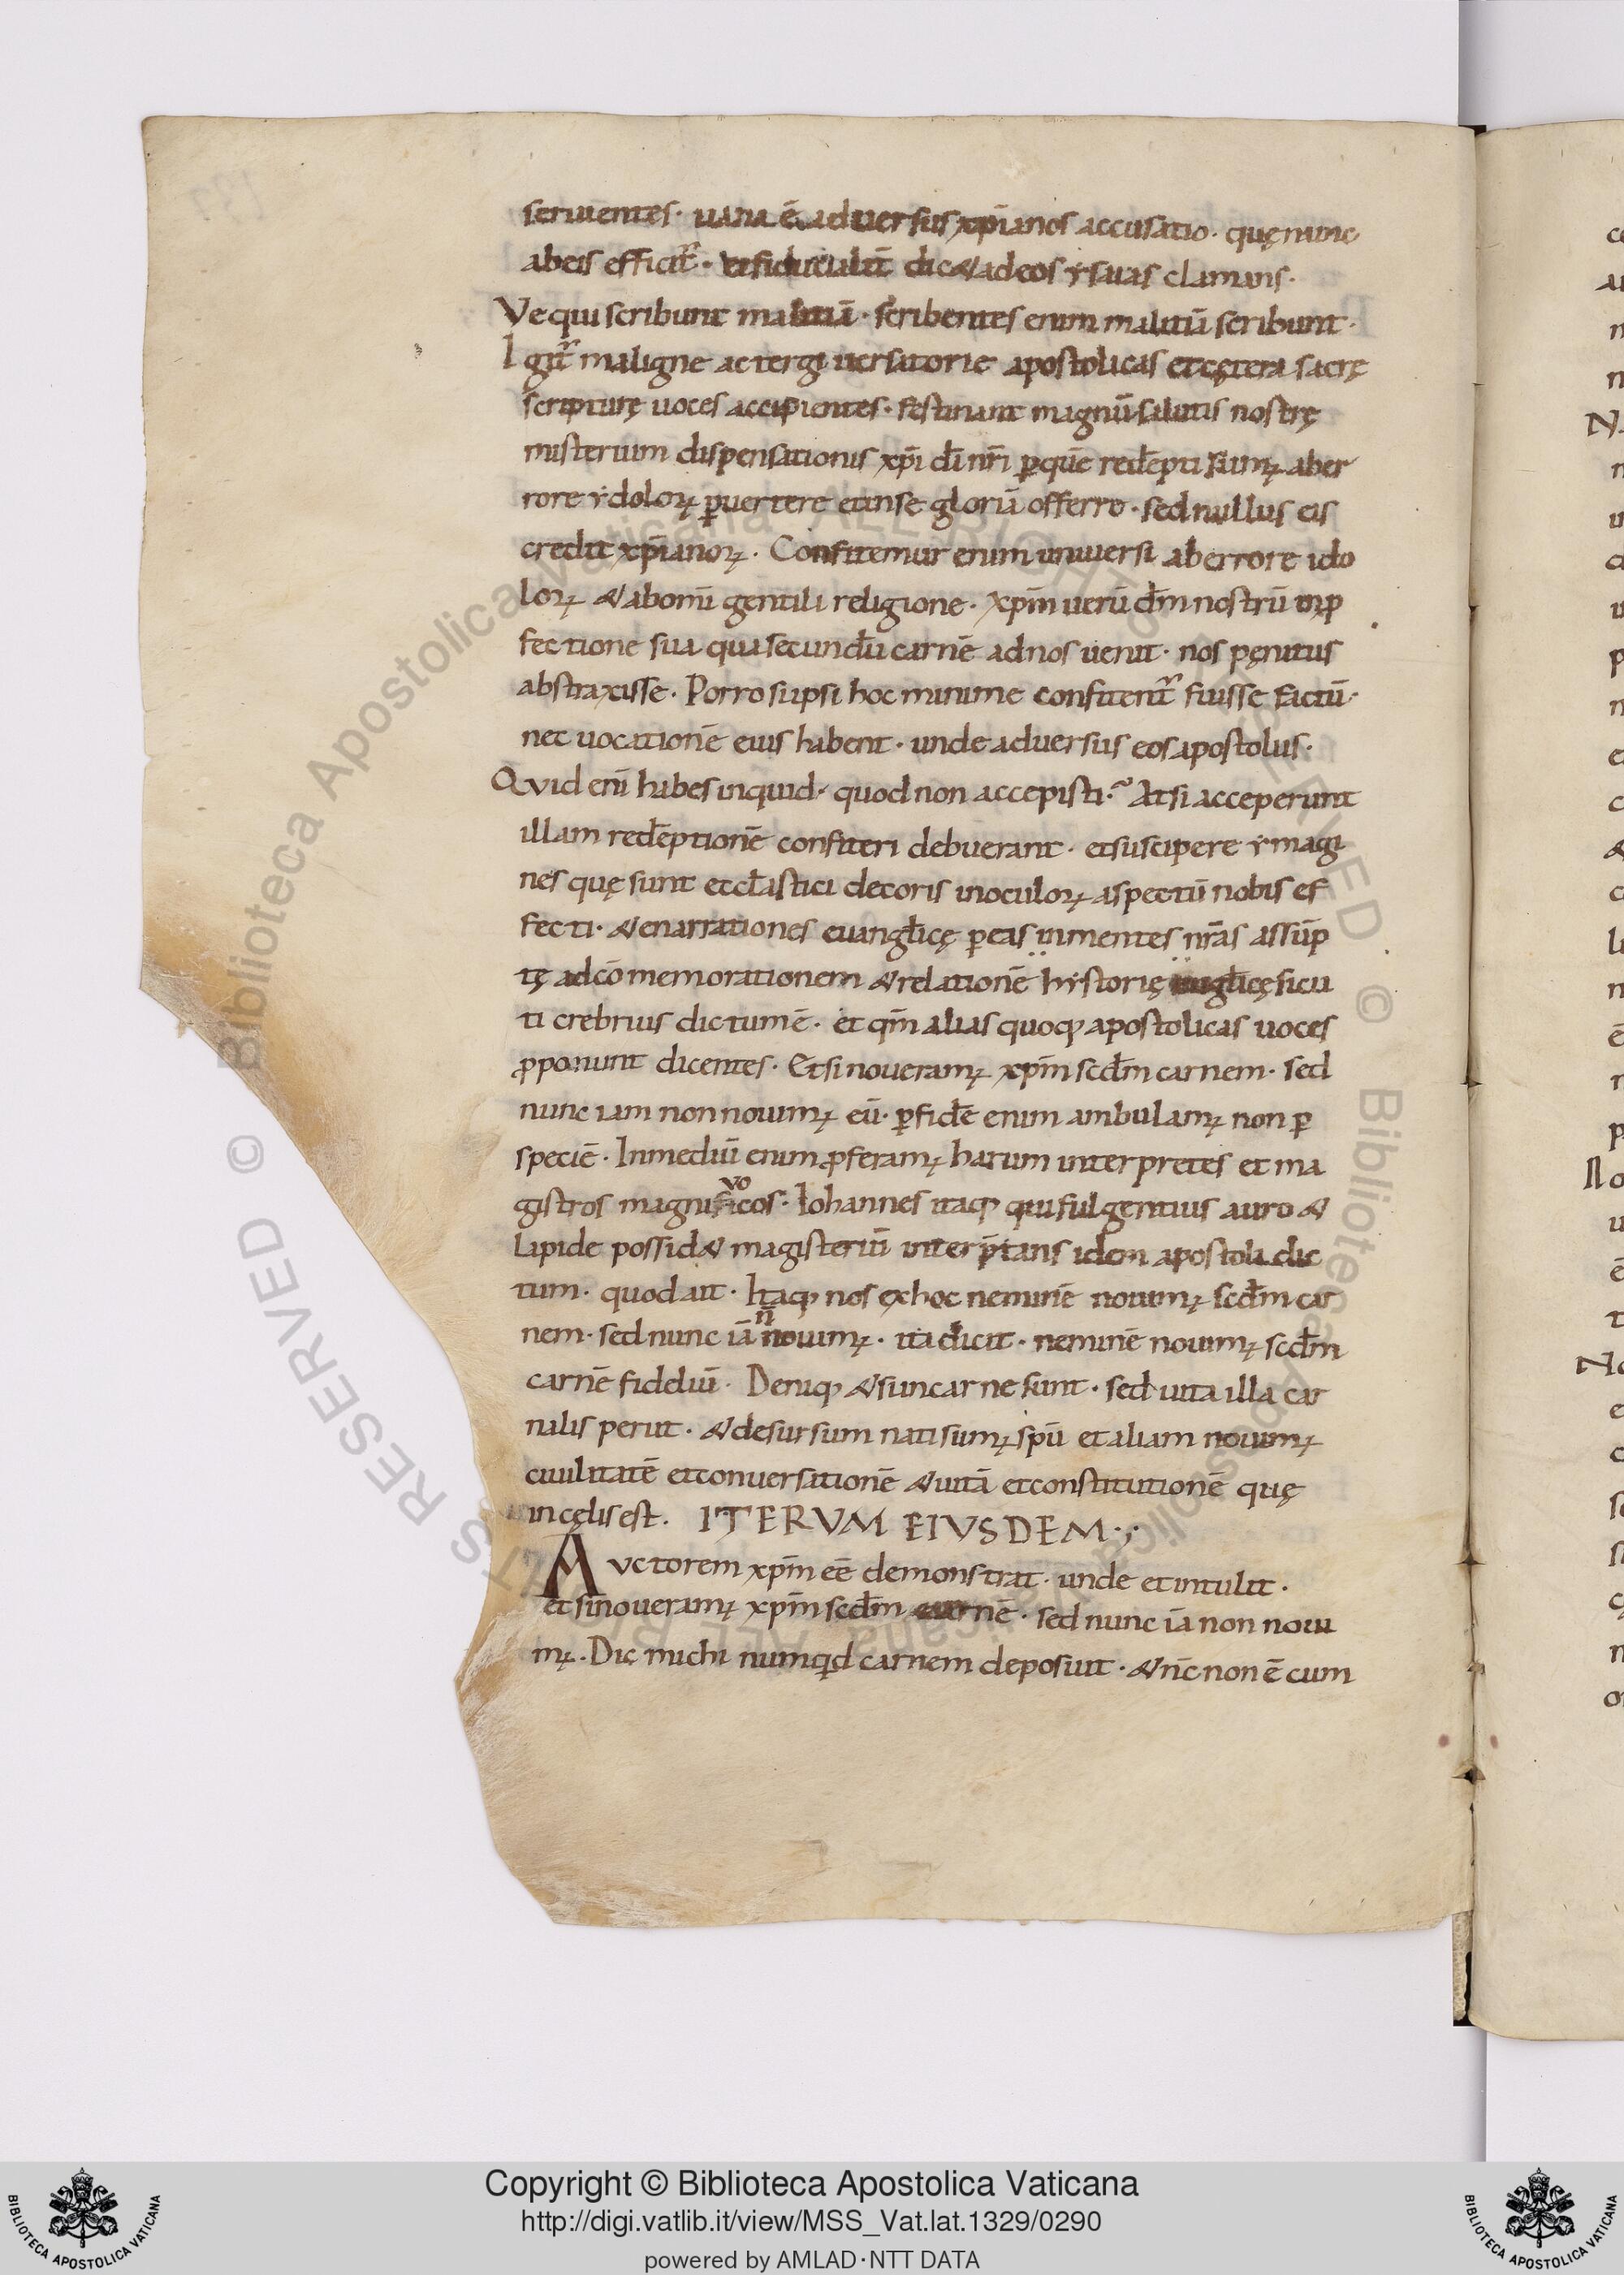 seruientes· uana ē aduersus xp̄ianos accusatio· quę nunc
ab eis efficit᷑· & fiducialit̄ dic& ad eos ysaias clamans·
Ve qui scribunt malitiā· scribentes enim malitiā scribunt·
Igit᷑ maligne ac tergiuersatorie apostolicas et cętera sacrę
scripturę uoces accipientes· festinant magnū salutis nostrę
misterium dispensationis xp̄i dī nr̄i ꝑ quē redēpti sumꝰ ab er
rore ydoloꝝ ꝑuertere et in se gloriā offerre· sed nullus eis
credit xp̄ianoꝝ· Confitemur enim uniuersi ab errore ido
loꝝ & ab omī gentili religione· xp̄m uerū dm̄ nostrū in ꝑ
fectione sua qua secundū carnē ad nos uenit· nos pęnitus
abstraxisse· Porro si ipsi hoc minime confitent᷑ fuisse factū·
nec uocationē eius habent· unde aduersus eos apostolus·
Quid enī habes inquid· quod non accepisti·? At si acceperunt
illam redēptionē confiteri debuerant· et suscipere ymagi
nes quę sunt eccl̄astici decoris in oculoꝝ aspectū nobis ef
fecti· & enarrationes euangl̄icę ꝑ eas in mentes nr̄as assūp
tę ad cōmemorationem & relationē hystorię euglicę sicu
ti crebrius dictum ē· et qm̄ alias quoqꝫ apostolicas uoces
ꝓponunt dicentes· Etsi noueramꝰ xp̄m scdm̄ carnem· sed
nunc iam non nouimꝰ eū· ꝑ fidē enim ambulamꝰ non ꝑ
speciē· In mediū enim ꝓferamꝰ harum interpretes et ma
gistros magniuocos· Iohannes itaqꝫ qui fulgentius auro &
lapide possid& magisteriū interp̄tans idem apostoli dic
tum· quod ait· Itaqꝫ nos ex hoc neminē nouimꝰ scdm̄ car
nem· sed nunc iā n̄ nouimꝰ· ita dicit· neminē nouimꝰ scdm̄
carnē fideliū· Deniqꝫ & si in carne sunt· sed uita illa car
nalis periit· & desursum nati sumꝰ spū et aliam nouimꝰ
ciuilitatē et conuersationē & uitā et constitutionē quę
in cęlis est. ITERVM EIVSDEM·;·
Auctorem xp̄m eē demonstrat· unde et intulit·
et si noueramꝰ xp̄m scdm̄ carnē· sed nunc iā non noui
mꝰ· Dic michi numqͥd carnem deposuit· & nc̄ non ē cum
Copyright © Biblioteca Apostolica Vaticana
http://digi.vatlib.it/view/MSS_Vat.lat.1329/0290
powered by AMLAD·NTT DATA